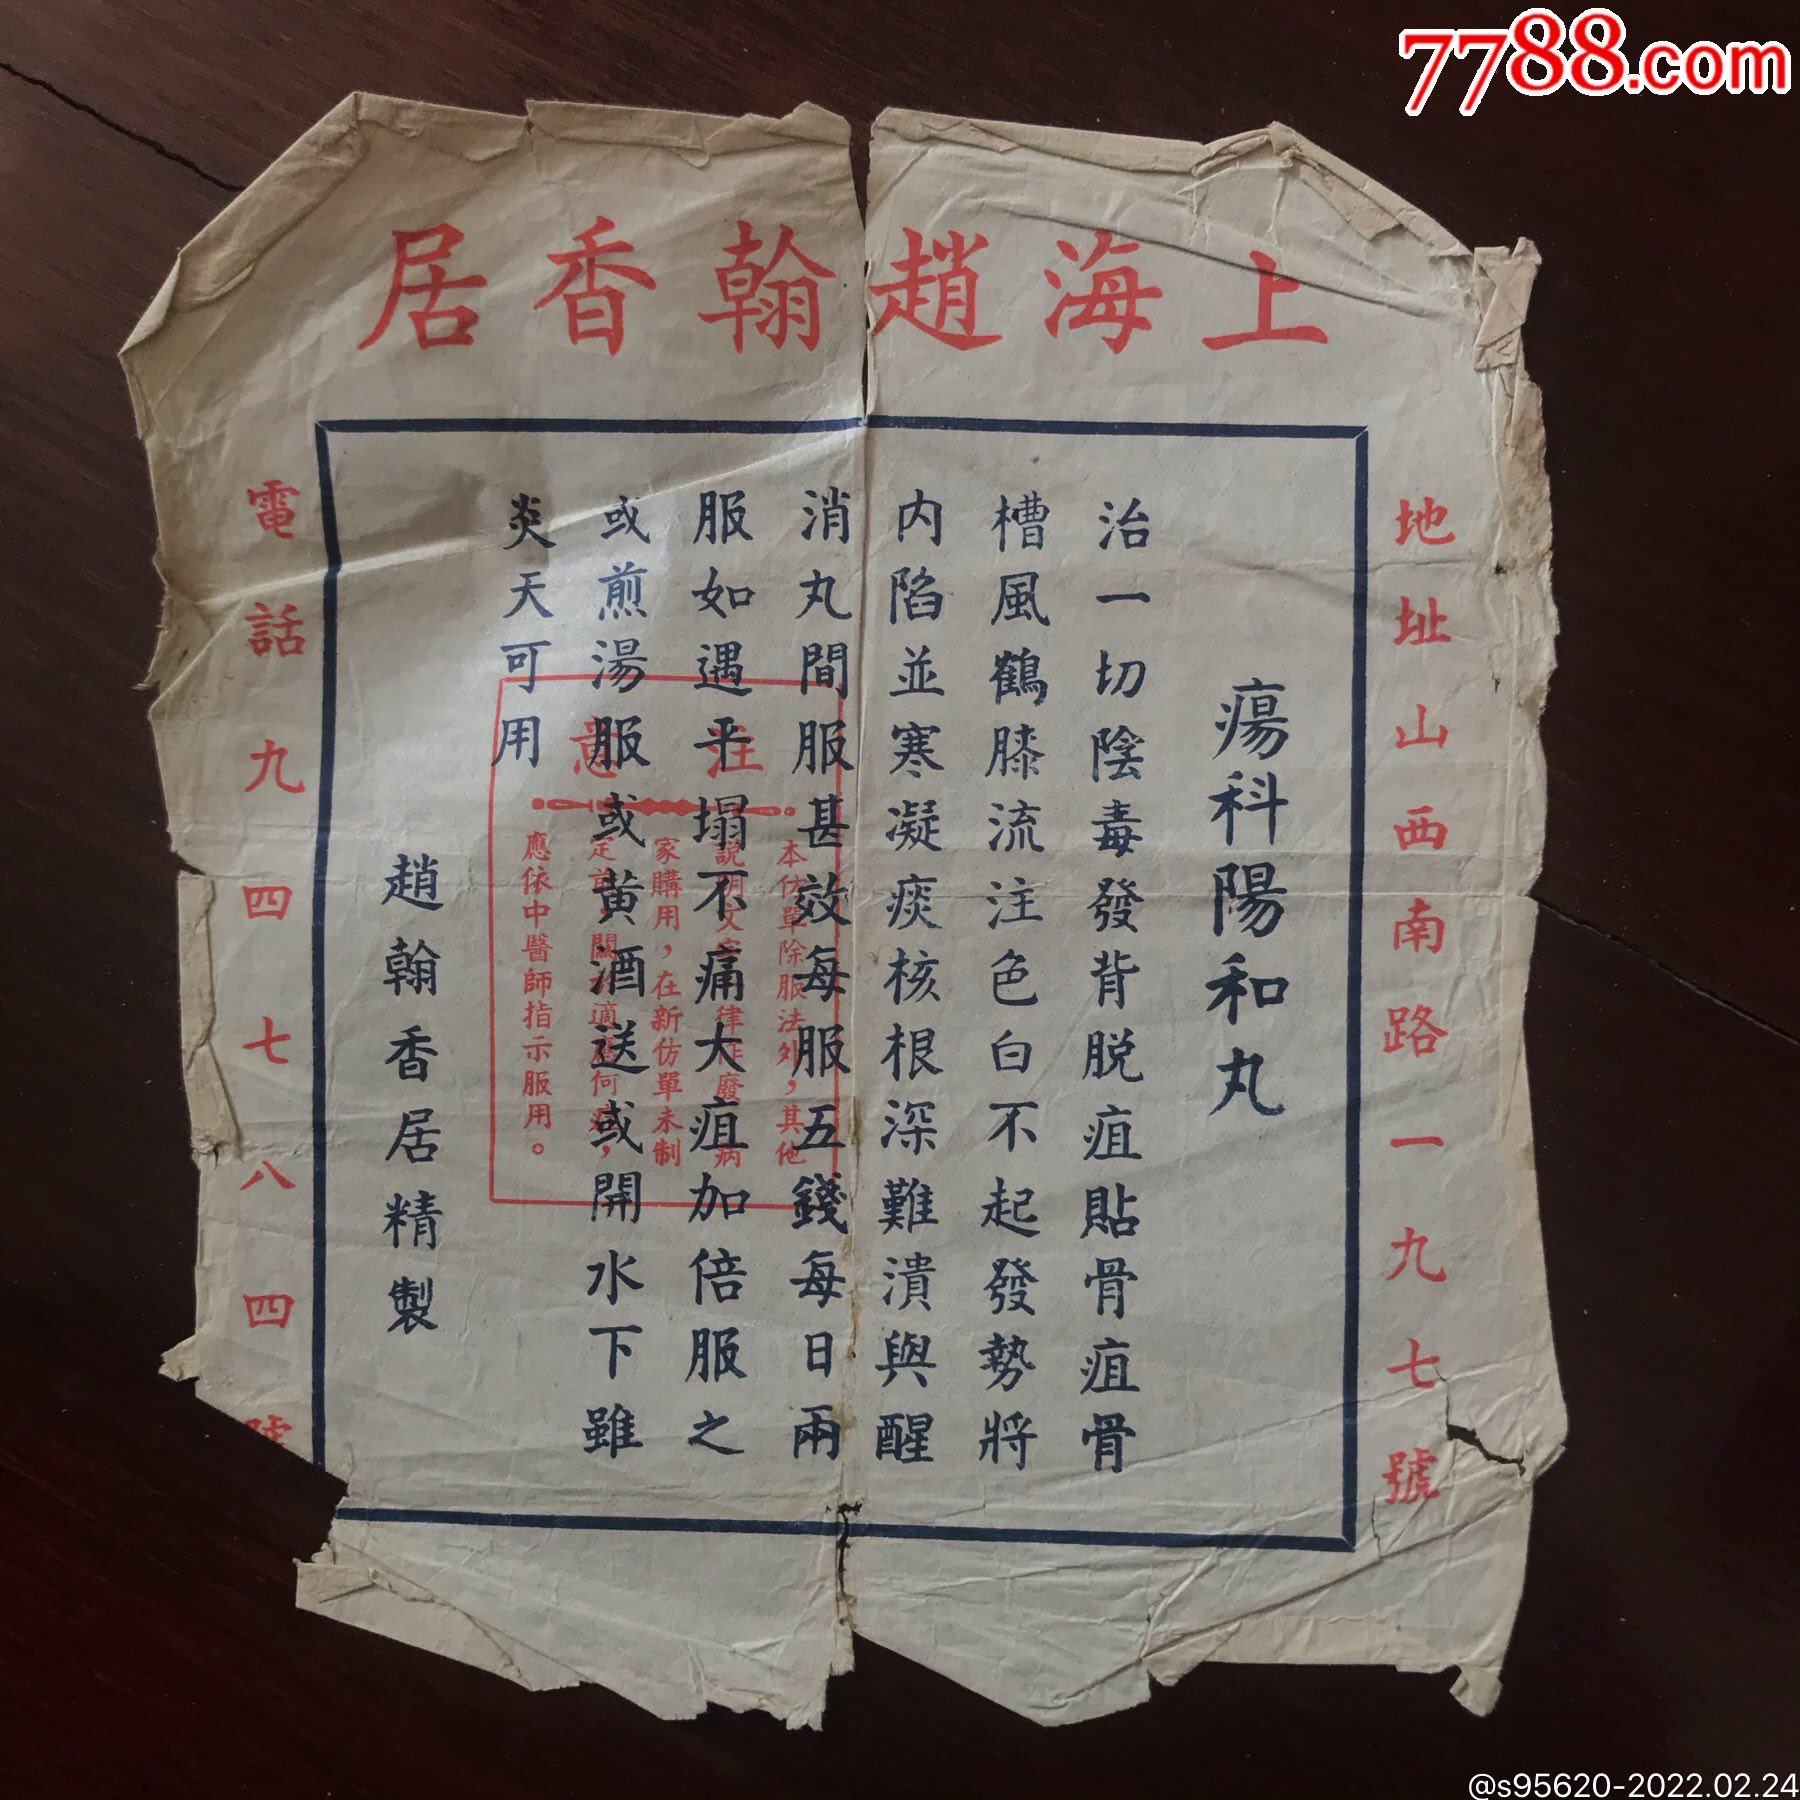 7788.com
上海趙翰香居
地址山西南路一九七號
瘍科陽和丸
治一切陰毒發背脱疽貼骨疽骨
槽風鶴膝流注色白不起發勢將
内陷並寒凝痰核根深難潰與醒
消丸間服甚效每服五錢每日兩
服如遇平塌不痛大疽加倍服之
或煎湯服或黄酒送或開水下雖
炎天可用
趙翰香居精製
電話九四七八四號
注意
本仿單除服法外，其他
說明文律作廢病
家購用，在新仿單未制
定前，關適何，
應依中醫師指示服用。
@s95620-2022.02.24